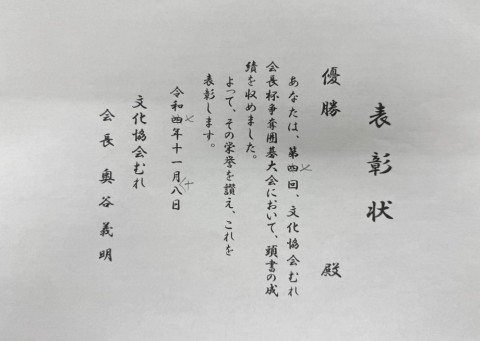 表彰状
優勝　　　　殿
あなたは、第四回、文化協会むれ
会長杯争奪囲碁大会において、頭書の成
績を収めました。
よって、その栄誉を讃え、これを
表彰します。
令和四年十一月八日
文化協会むれ
会長　奥谷義明